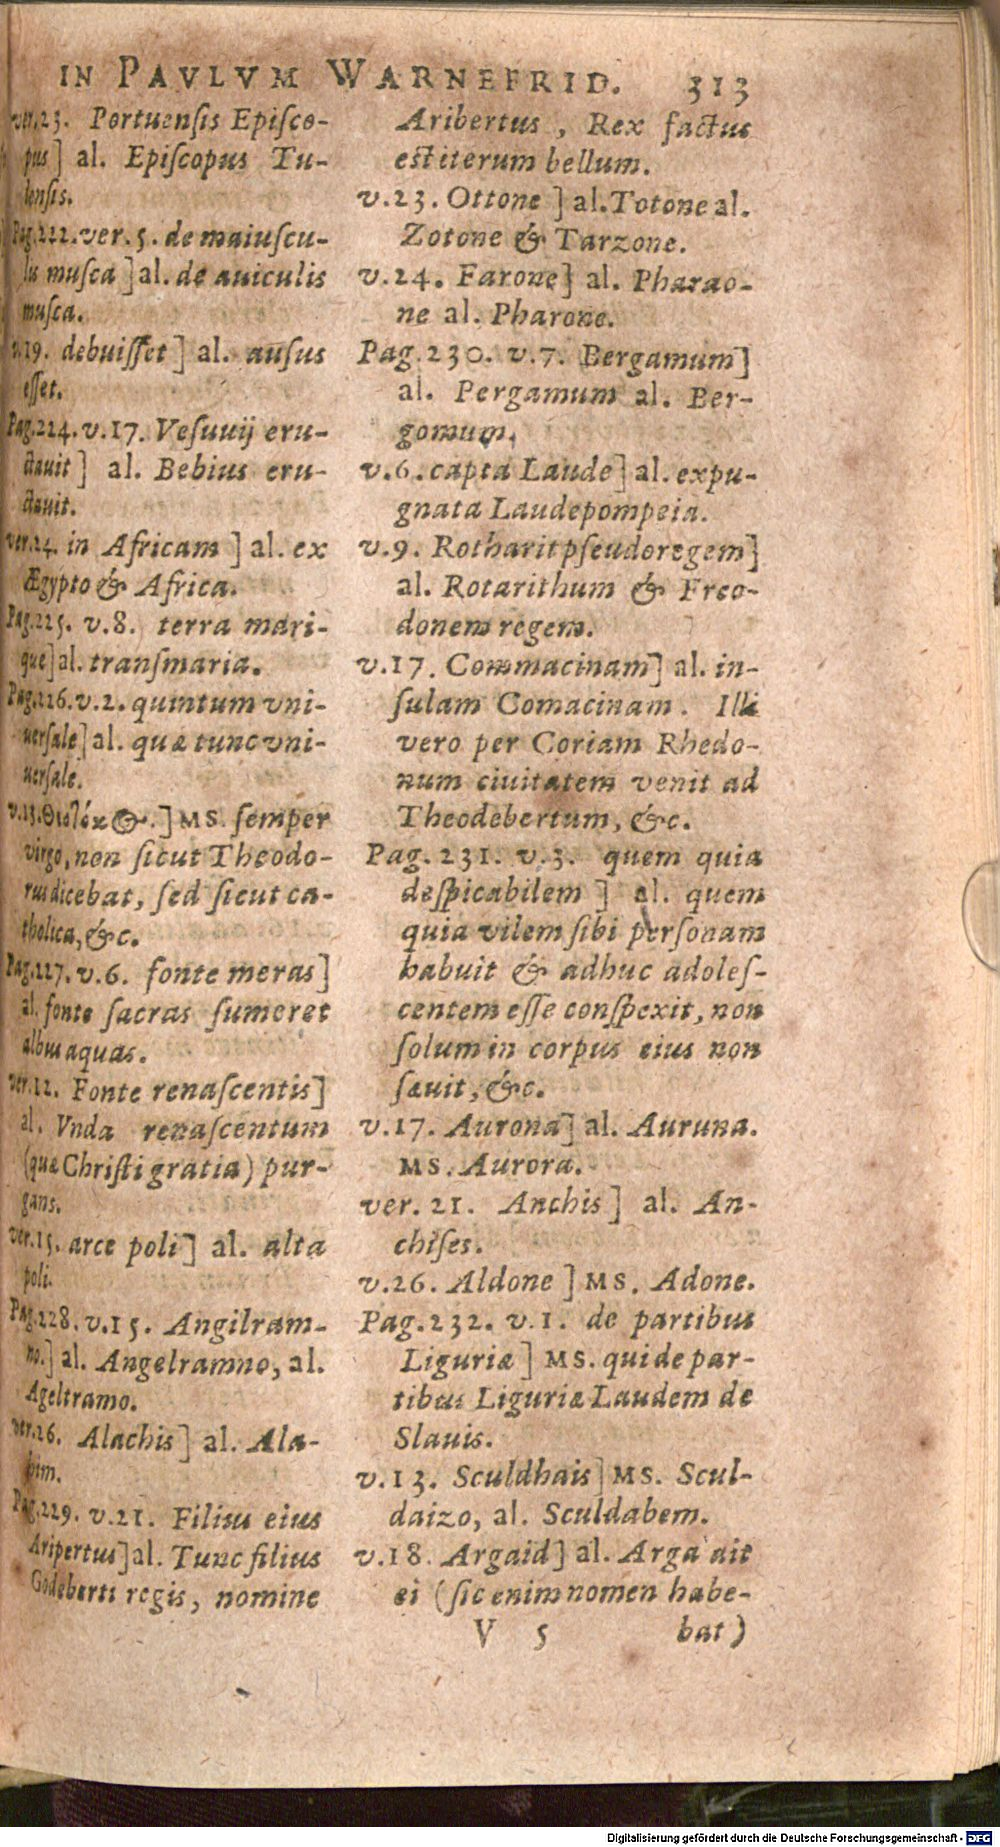 IN PAVLVM WARNEFRID. 313
ver.23. Portuensis Episco-
pus] al. Episcopus Tu-
lensis.
Pag.222.ver.5. de maiuscu-
la musca] al. de auiculis
musca.
v.19. debuisset] al. ausus
esset.
Pag.224.v.17. Vesuuij eru-
ctauit] al. Bebius eru-
ctauit.
ver.24. in Africam] al. ex
Ægypto & Africa.
Pag.225. v.8. terra mari-
que] al. transmaria.
Pag.226.v.2. quintum vni-
uersale] al. quæ tunc vni-
uersale.
v.13. ] MS. semper
virgo, non sicut Theodo-
rus dicebat, sed sicut ca-
tholica, &c.
Pag.227.v.6. fonte meras]
al. fonte sacras sumeret
albus aquas.
ver.12. Fonte renascentis]
al. Vnda renascentum
(quæ Christi gratia) pur-
gans.
ver.15. arce poli] al. alta
poli.
Pag.228.v.15. Angilram-
no.] al. Angelramno, al.
Ageltramo.
ver.26. Alachis] al. Ala-
him.
Pag.229. v.21. Filius eius
Aripertus] al. Tunc filius
Godeberti regis, nomine
Aribertus, Rex factus
est iterum bellum.
v.23. Ottone] al. Totone al.
Zotone & Tarzone.
v.24. Farone] al. Pharao-
ne al. Pharone.
Pag.230. v.7. Bergamum]
al. Pergamum al. Ber-
gomum.
v.6. capta Laude] al. expu-
gnata Laudepompeia.
v.9. Rotharit pseudoregem]
al. Rotarithum & Freo-
donem regem.
v.17. Commacinam] al. in-
sulam Comacinam. Illi
vero per Coriam Rhedo-
num ciuitatem venit ad
Theodebertum, &c.
Pag.231. v.3. quem quia
despicabilem] al. quem
quia vilem sibi personam
habuit & adhuc adoles-
centem esse conspexit, non
solum in corpus eius non
sæuit, &c.
v.17. Aurona] al. Auruna.
MS. Aurora.
ver.21. Anchis] al. An-
chises.
v.26. Aldone] MS. Adone.
Pag.232. v.1. de partibus
Liguriæ] MS. qui de par-
tibus Liguriæ Laudem de
Slauis.
v.13. Sculdhais] MS. Scul-
daizo, al. Sculdabem.
v.18. Argaid] al. Arga ait
ei (sic enim nomen habe-
V 5 bat)
Digitalisierung gefördert durch die Deutsche Forschungsgemeinschaft - DFG